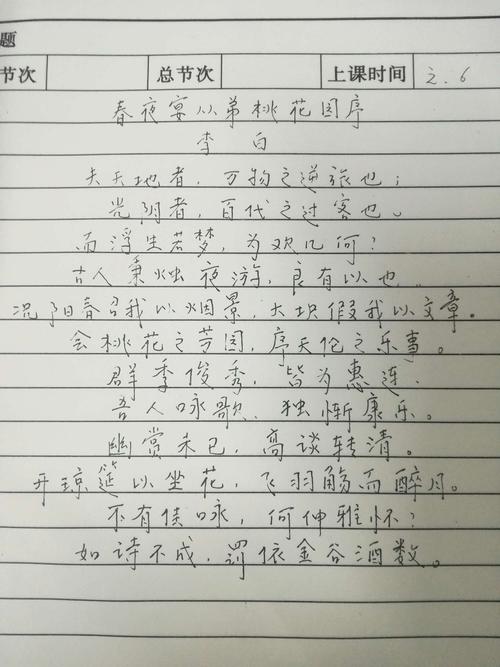 题
节次 总节次 上课时间 2.6
春夜宴从弟桃花园序
李白
夫天地者，万物之逆旅也；
光阴者，百代之过客也。
而浮生若梦，为欢几何？
古人秉烛夜游，良有以也．
况阳春召我以烟景，大块假我以文章。
会桃花之芳园，序天伦之乐事。
群季俊秀，皆为惠连．
吾人咏歌．独惭康乐。
幽赏未已，高谈转清。
开琼筵以坐花，飞羽觞而醉月。
不有佳咏，何伸雅怀？
如诗不成，罚依金谷酒数。